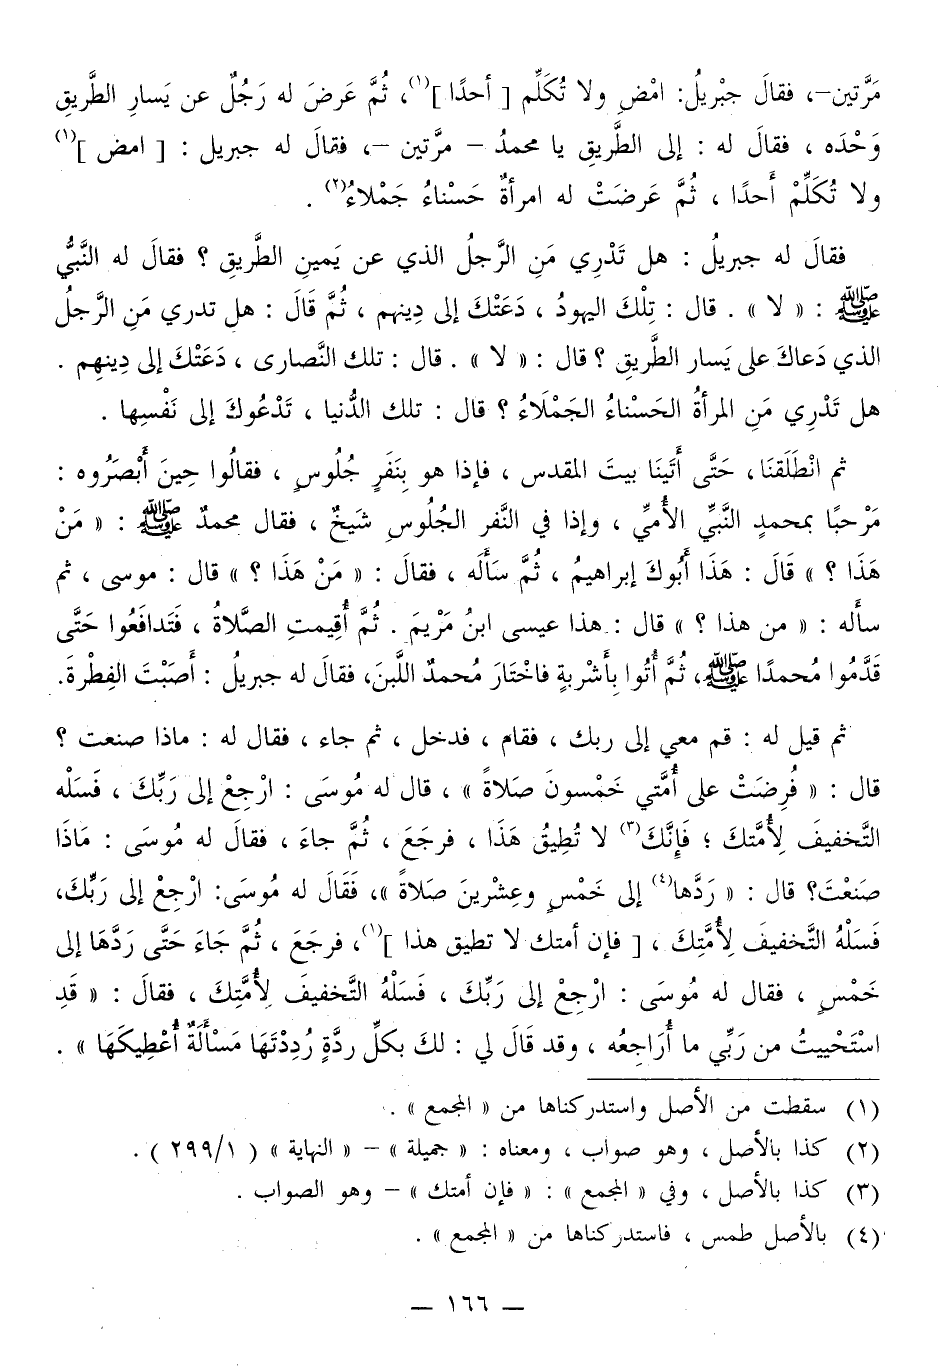 مَرَّتين–، فقالَ جبْريلُ: امْضِ ولا تُكَلِّم [ أحدًا ]<sup>(١)</sup>، ثُمَّ عَرضَ له رَجُلٌ عن يَسارِ الطَّريقِ
وَحْدَه ، فقالَ له : إلى الطَّريقِ يا محمدُ – مرَّتين –، فقالَ له جبريل : [ امض ]<sup>(١)</sup>
ولا تُكَلِّمْ أَحدًا ، ثُمَّ عَرضَتْ له امرأةٌ حَسْناءُ جَمْلاءُ<sup>(٢)</sup> .
فقالَ له جبريلُ : هل تَدْرِي مَنِ الرَّجلُ الذي عن يَمينِ الطَّريقِ ؟ فقالَ له النَّبيُّ
ﷺ : « لا » . قال : تِلْكَ اليهودُ ، دَعَتْكَ إلى دِينهم ، ثُمَّ قَالَ : هل تدري مَنِ الرَّجلُ
الذي دَعاكَ على يَسار الطَّريقِ ؟ قال : « لا » . قال : تلك النَّصارى ، دَعَتْكَ إلى دِينِهِم .
هل تَدْرِي مَنِ المرأةُ الحَسْناءُ الجَمْلَاءُ ؟ قال : تلك الدُّنيا ، تَدْعُوكَ إلى نَفْسِها .
ثم انْطَلَقنَا، حَتَّى أَتَينَا بيتَ المقدس ، فإذا هو بِنَفَرٍ جُلُوسٍ ، فقالُوا حِينَ أَبْصَرُوه :
مَرْحبًا بمحمدٍ النَّبيِّ الأُميِّ ، وإذا في النَّفر الجُلُوسِ شَيخٌ ، فقال محمدٌ ﷺ : « مَنْ
هَذَا ؟ » قَالَ : هَذَا أَبُوكَ إبراهيمُ ، ثُمَّ سَأَلَه ، فقالَ : « مَنْ هَذَا ؟ » قال : موسى ، ثم
سأله : « من هذا ؟ » قال : هذا عيسى ابنُ مَرْيمَ . ثُمَّ أُقِيمتِ الصَّلاةُ ، فَتَدافَعُوا حَتَّى
قَدَّمُوا مُحمدًا ﷺ، ثُمَّ أُتُوا بِأَشْربةٍ فاخْتَارَ مُحمدٌ اللَّبنَ، فقالَ له جبريلُ : أَصَبْتَ الفِطْرةَ.
ثم قيل له : قم معي إلى ربك ، فقام ، فدخل ، ثم جاء ، فقال له : ماذا صنعت ؟
قال : « فُرِضَتْ على أُمَّتي خَمْسونَ صَلاةً » ، قال له مُوسَى : ارْجِعْ إلى رَبِّكَ ، فَسَلْه
التَّخفيفَ لِأُمَّتكَ ؛ فَإِنَّكَ<sup>(٣)</sup> لا تُطِيقُ هَذَا ، فرجَعَ ، ثُمَّ جاءَ ، فقالَ له مُوسَى : مَاذَا
صنَعْتَ؟ قال : « رَدَّها<sup>(٤)</sup> إلى خَمْسٍ وعِشْرينَ صَلاةً »، فَقَالَ له مُوسَى: ارْجِعْ إلى رَبِّكَ،
فَسَلْهُ التَّخفيفَ لِأُمَّتِكَ ، [ فإن أمتك لا تطيق هذا ]<sup>(١)</sup>، فرجَعَ ، ثُمَّ جَاءَ حَتَّى رَدَّهَا إلى
خَمْسٍ ، فقال له مُوسَى : ارْجِعْ إلى رَبِّكَ ، فَسَلْهُ التَّخفيفَ لِأُمَّتِكَ ، فقالَ : « قَدِ
اسْتَحْييتُ من رَبِّي ما أُرَاجِعُه ، وقد قَالَ لي : لكَ بكلِّ ردَّةٍ رُدِدْتَهَا مَسْأَلَةٌ أُعْطِيكَهَا » .
(١) سقطت من الأصل واستدركناها من « المجمع » .
(٢) كذا بالأصل ، وهو صواب ، ومعناه : « جميلة » – « النهاية » ( ٢٩٩/١ ) .
(٣) كذا بالأصل ، وفي « المجمع » : « فإن أمتك » – وهو الصواب .
(٤) بالأصل طمس ، فاستدركناها من « المجمع » .
– ١٦٦ –